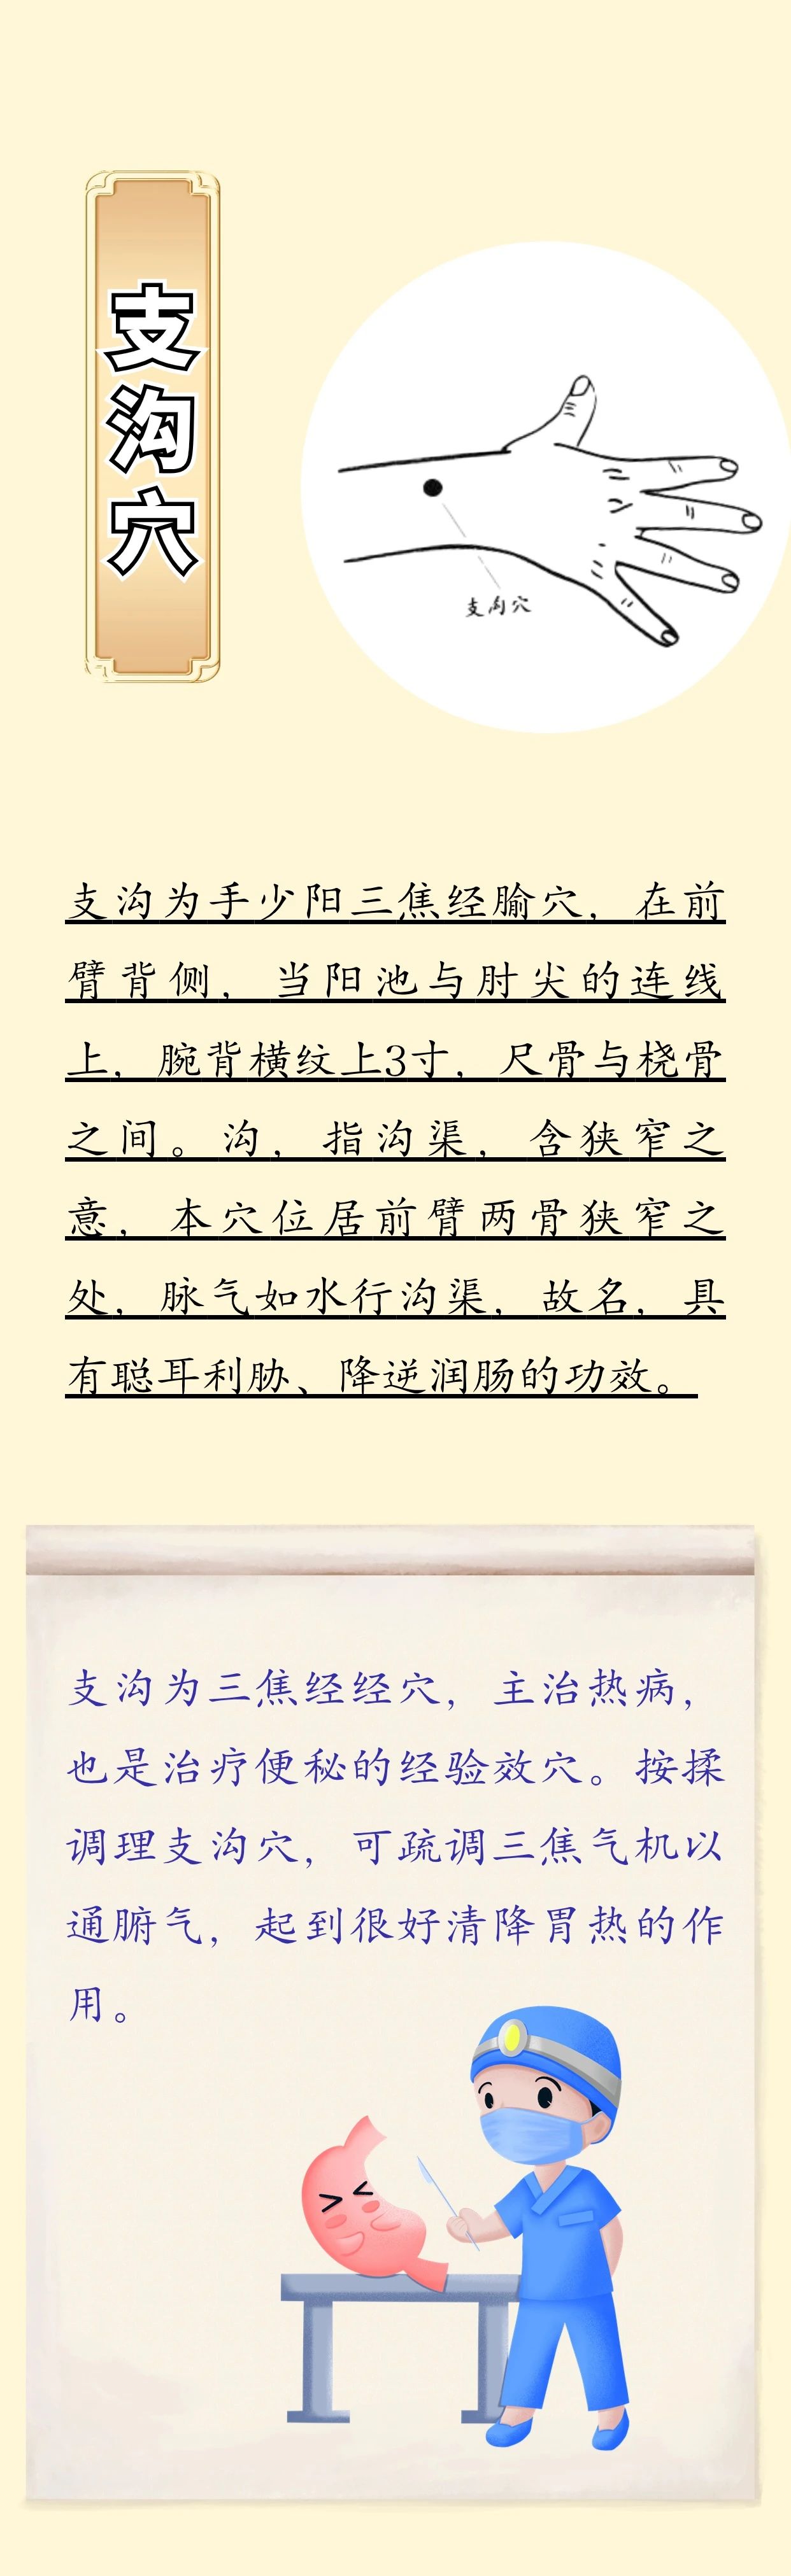 支沟穴
支沟穴
支沟为手少阳三焦经腧穴，在前
臂背侧，当阳池与肘尖的连线
上，腕背横纹上3寸，尺骨与桡骨
之间。沟，指沟渠，含狭窄之
意，本穴位居前臂两骨狭窄之
处，脉气如水行沟渠，故名，具
有聪耳利胁、降逆润肠的功效。
支沟为三焦经经穴，主治热病，
也是治疗便秘的经验效穴。按揉
调理支沟穴，可疏调三焦气机以
通腑气，起到很好清降胃热的作
用。